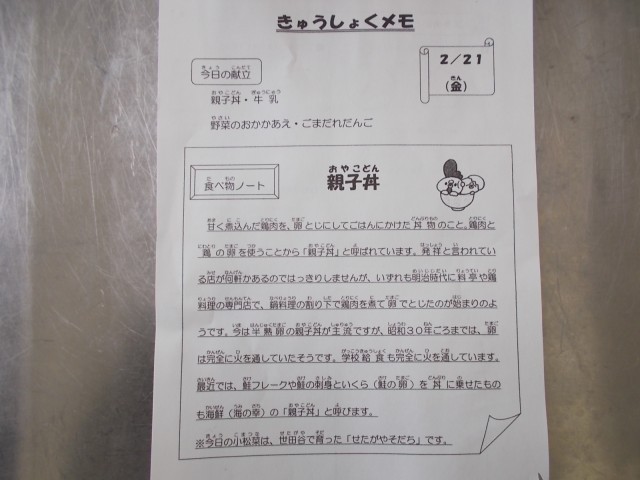 きゅうしょくメモ
2/21
(金)
今日の献立
親子丼・牛乳
野菜のおかかあえ・ごまだれだんご
食べ物ノート
親子丼
甘く煮込んだ鶏肉を、卵とじにしてごはんにかけた丼物のこと。鶏肉と
鶏の卵を使うことから「親子丼」と呼ばれています。発祥と言われてい
る店が何軒かあるのではっきりしませんが、いずれも明治時代に料亭や鶏
料理の専門店で、鍋料理の割り下で鶏肉を煮て卵でとじたのが始まりのよ
うです。今は半熟卵の親子丼が主流ですが、昭和30年ごろまでは、卵
は完全に火を通していたそうです。学校給食も完全に火を通しています。
最近では、鮭フレークや鮭の刺身といくら(鮭の卵)を丼に乗せたもの
も海鮮(海の幸)の「親子丼」と呼びます。
※今日の小松菜は、世田谷で育った「せたがやそだち」です。